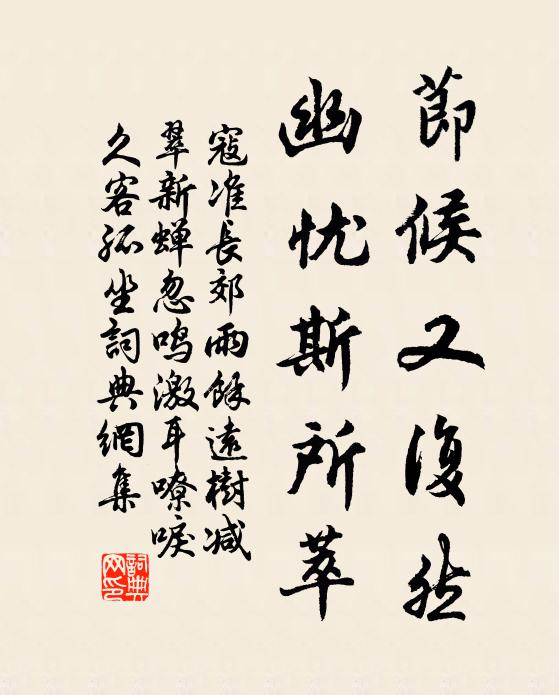 節候又復然
幽忧斯所萃
寇准長郊雨餘遠樹减
翠新蝉忽鳴激耳嘹唳
久客孤坐詞典網集
詞典
网印